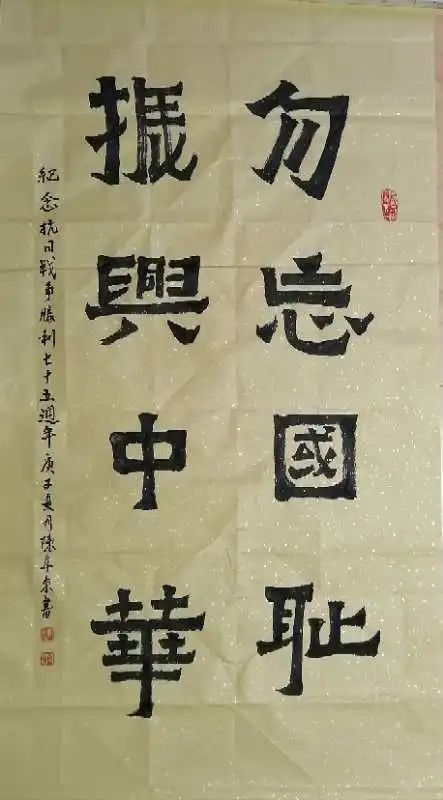 勿忘國耻
振興中華
紀念抗日戰争勝利七十五週年庚子夏月陳書